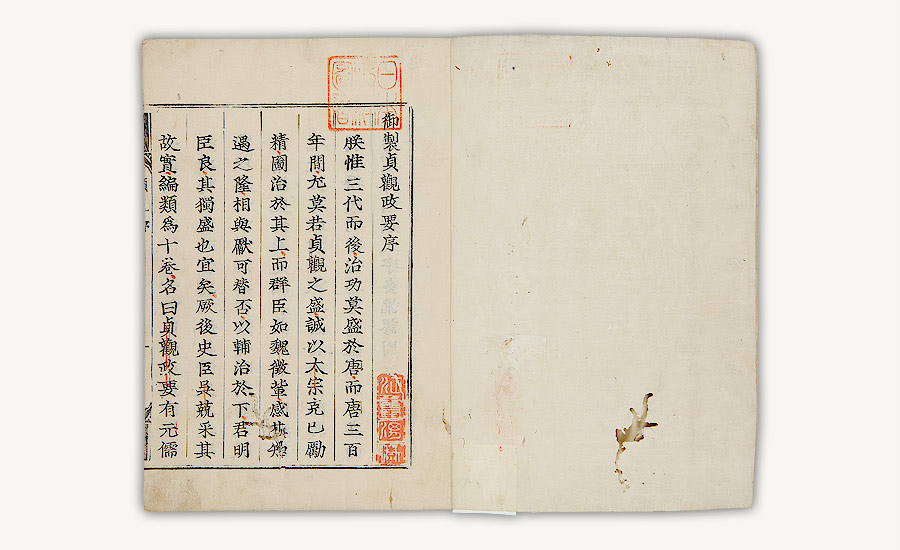 御製貞觀政要序
朕惟三代而後治功莫盛於唐而唐三百
年間尤莫若貞觀之盛誠以太宗克己勵
精圖治於其上而群臣如魏徵輩感其
遇之隆相與獻可替否以輔治於下君明
臣良其獨盛也宜矣厥後史臣吳兢采其
故實編類爲十卷名曰貞觀政要有元儒